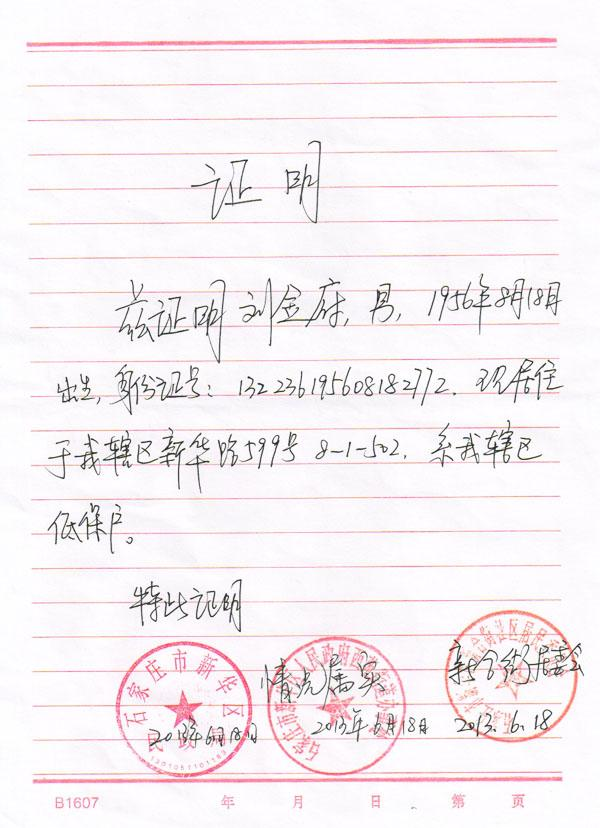 证明
兹证明刘金府，男，1956年8月18月
出生，身份证号：132236195608182772．现居住
于我辖区新华路599号 8-1-502．系我辖区
低保户。
特此证明
石家庄市新华区民政
2013年6月18日
1301051101183
情况属实
2013年6月18日
新合街居委会
2013.6.18
B1607 年 月 日 第 页